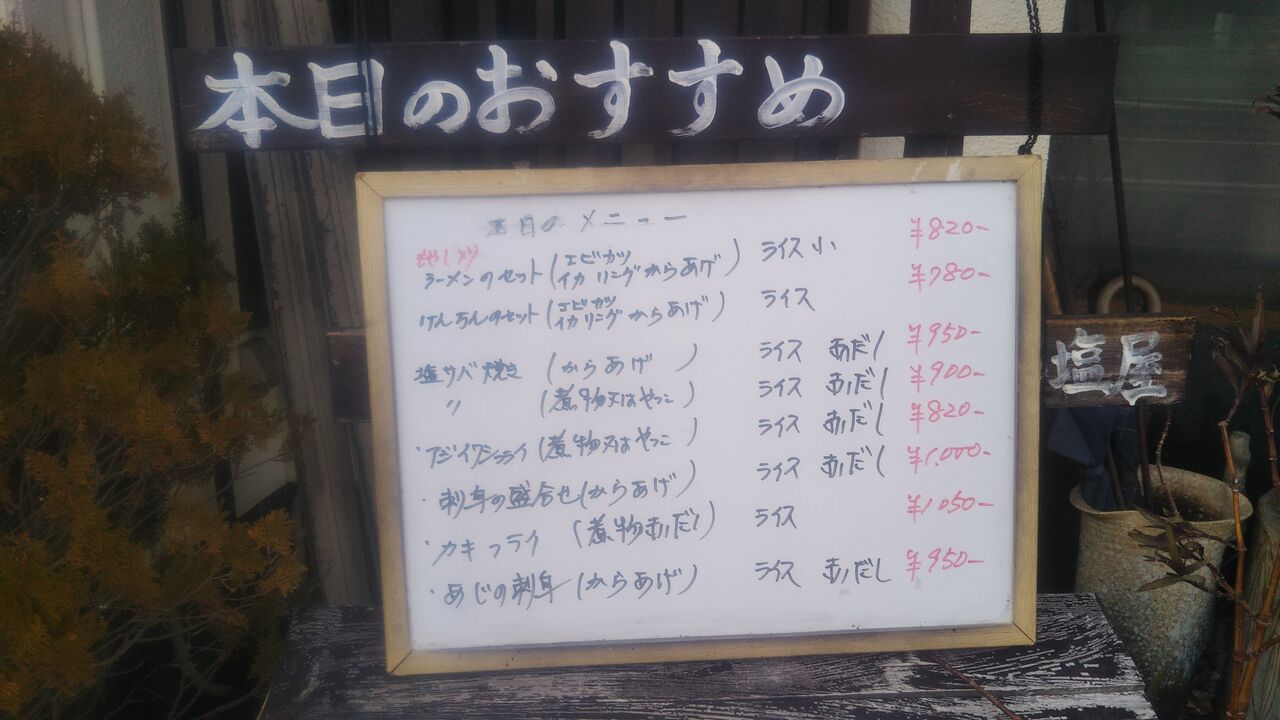 本日のおすすめ
本日のメニュー
もやし入り
ラーメンのセット(エビカツ イカリングからあげ) ライス小 ¥820-
けんちんのセット(エビカツ イカリングからあげ) ライス ¥780-
塩サバ焼き (からあげ) ライス あだし ¥950-
〃 (煮物又はやっこ) ライス あかだし ¥900-
・アジイワシフライ(煮物又はやっこ) ライス あかだし ¥820-
・刺身の盛合せ(からあげ) ライス あかだし ¥1,000-
・カキフライ (煮物あかだし) ライス ¥1050-
・あじの刺身(からあげ) ライス あかだし ¥950-
塩屋